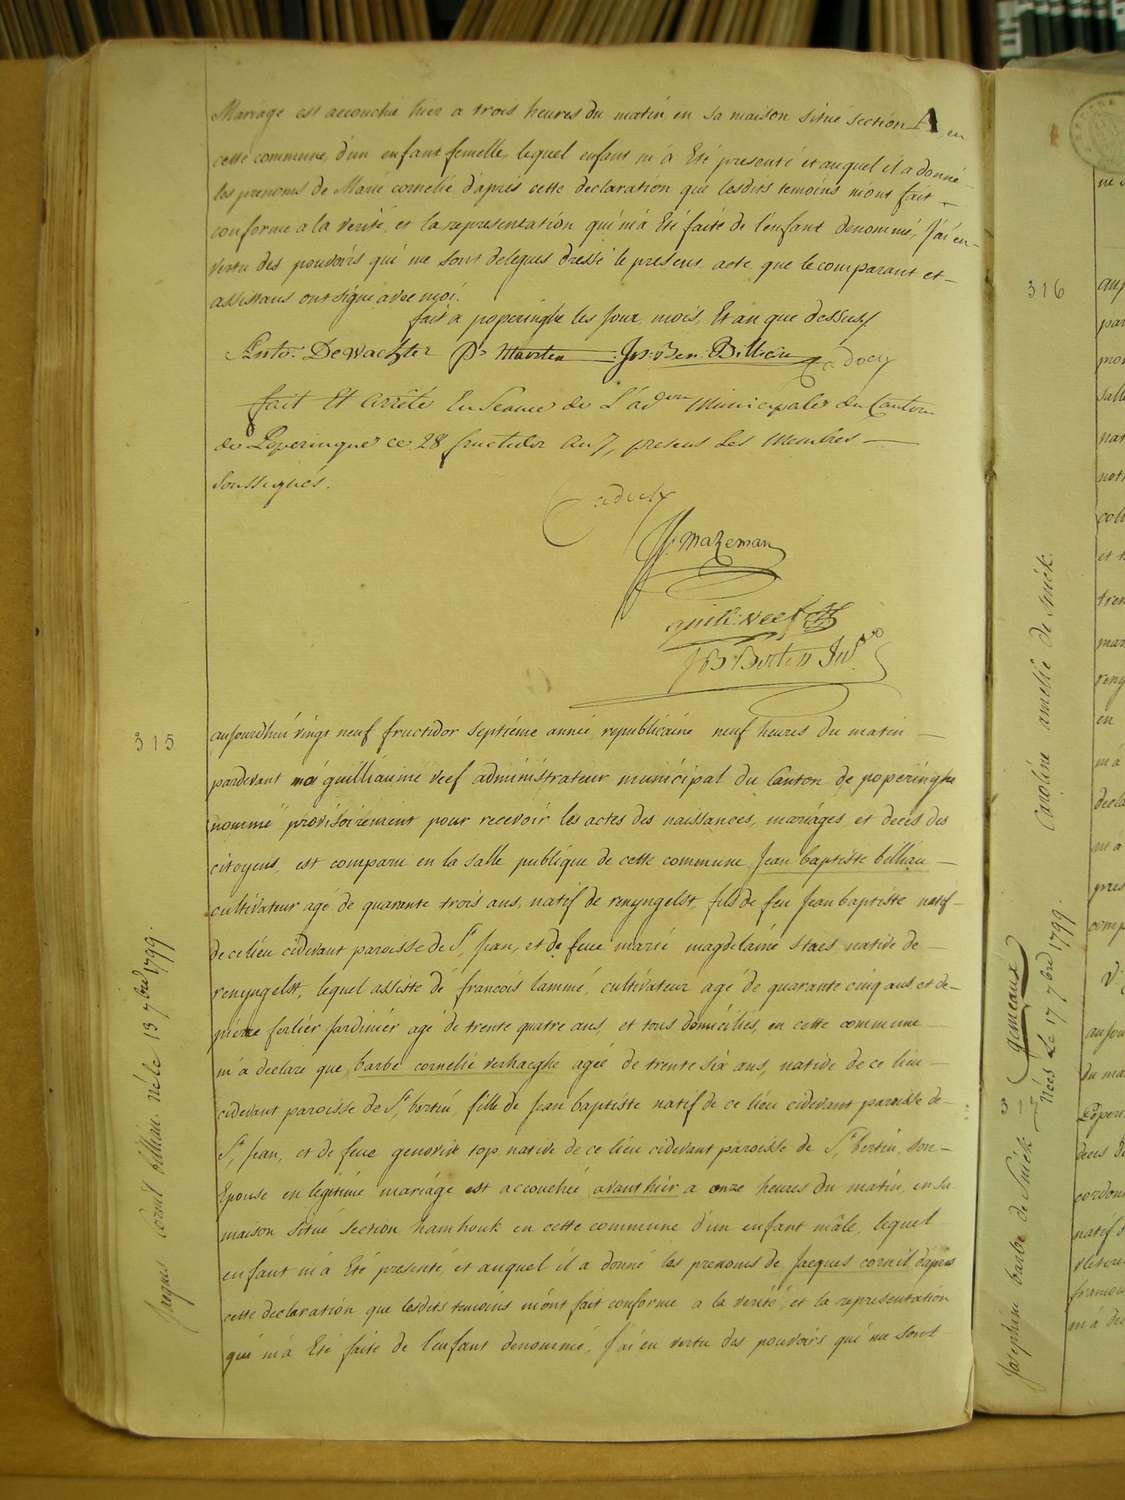 Mariage est accouchée hier a trois heures du matin, en sa maison situé section A, en
cette commune, d'un enfant femelle, lequel enfant m'à Eté presenté et auquel il a donné
les prenoms de Marié cornelié d'aprés cette declaration que lesdits temoins m'ont fait
conforme a la verité, et la representation qui m'à Eté faité de l'enfant denommé, J'ai en
vertu des pouvoirs qui me sont delegués dressé le present acte, que le comparant et
assistans ont signé avec moi.
fait a poperinghe les Jour, mois, Et an que dessus
DeWachter
fait Et arrêté En Seance de L'adon Municipale du Canton
de Poperingue ce 28 fructidor An 7, present Les Membres
Soussignés.
Mazeman
guill: Veef
JB: Berten
315
aujourdhui vingt neuf fructidor septiéme année republicaine neuf heures du matin
pardevant moi guilliaume veef administrateur municipal du Canton de poperinghe
nommé provisoirement pour recevoir les actes des naissances, mariages, et decés des
citoyens, est comparu en la salle publique de cette commune Jean baptiste billiau
cultivateur agé de quarante trois ans, natif de renyngelst, fils de feu Jean baptiste natif
de ce lieu cidevant paroisse de St Jean, et de feue marié magdelainé staes native de
renyngelst, lequel assisté de francois lammé, cultivateur agé de quarante cinq ans et de
pierre forlier Jardinier agé de trente quatre ans, et tous domiciliés, en cette commune
m'à declaré que barbe cornelié verhaeghe ageé de trente six ans, native de ce lieu
cidevant paroisse de St bertin, fille de Jean baptiste natif de ce lieu cidevant paroisse de
St Jean, et de feue genovive top native de ce lieu cidevant paroisse de St bertin, son
Epouse en legitime mariage est accouchée avanthier a onze heures du matin, en sa
maison situé section hamhouk en cette commune d'un enfant mâle, lequel
enfant m'à Eté presenté, et auquel il a donné les prenoms de Jacques cornil d'aprés
cette declaration que lesdits temoins m'ont fait conforme a la verité, et la representation
qui m'à Eté faité de l'enfant denommé, J'ai en vertu des pouvoirs qui me sont
Jacques Cornil billiau. Né le 13 7bre 1799.
316
Caroline amelie de Snick.
Josephine barbe de Snick
gemeaux
Nées Le 17 7bre 1799.